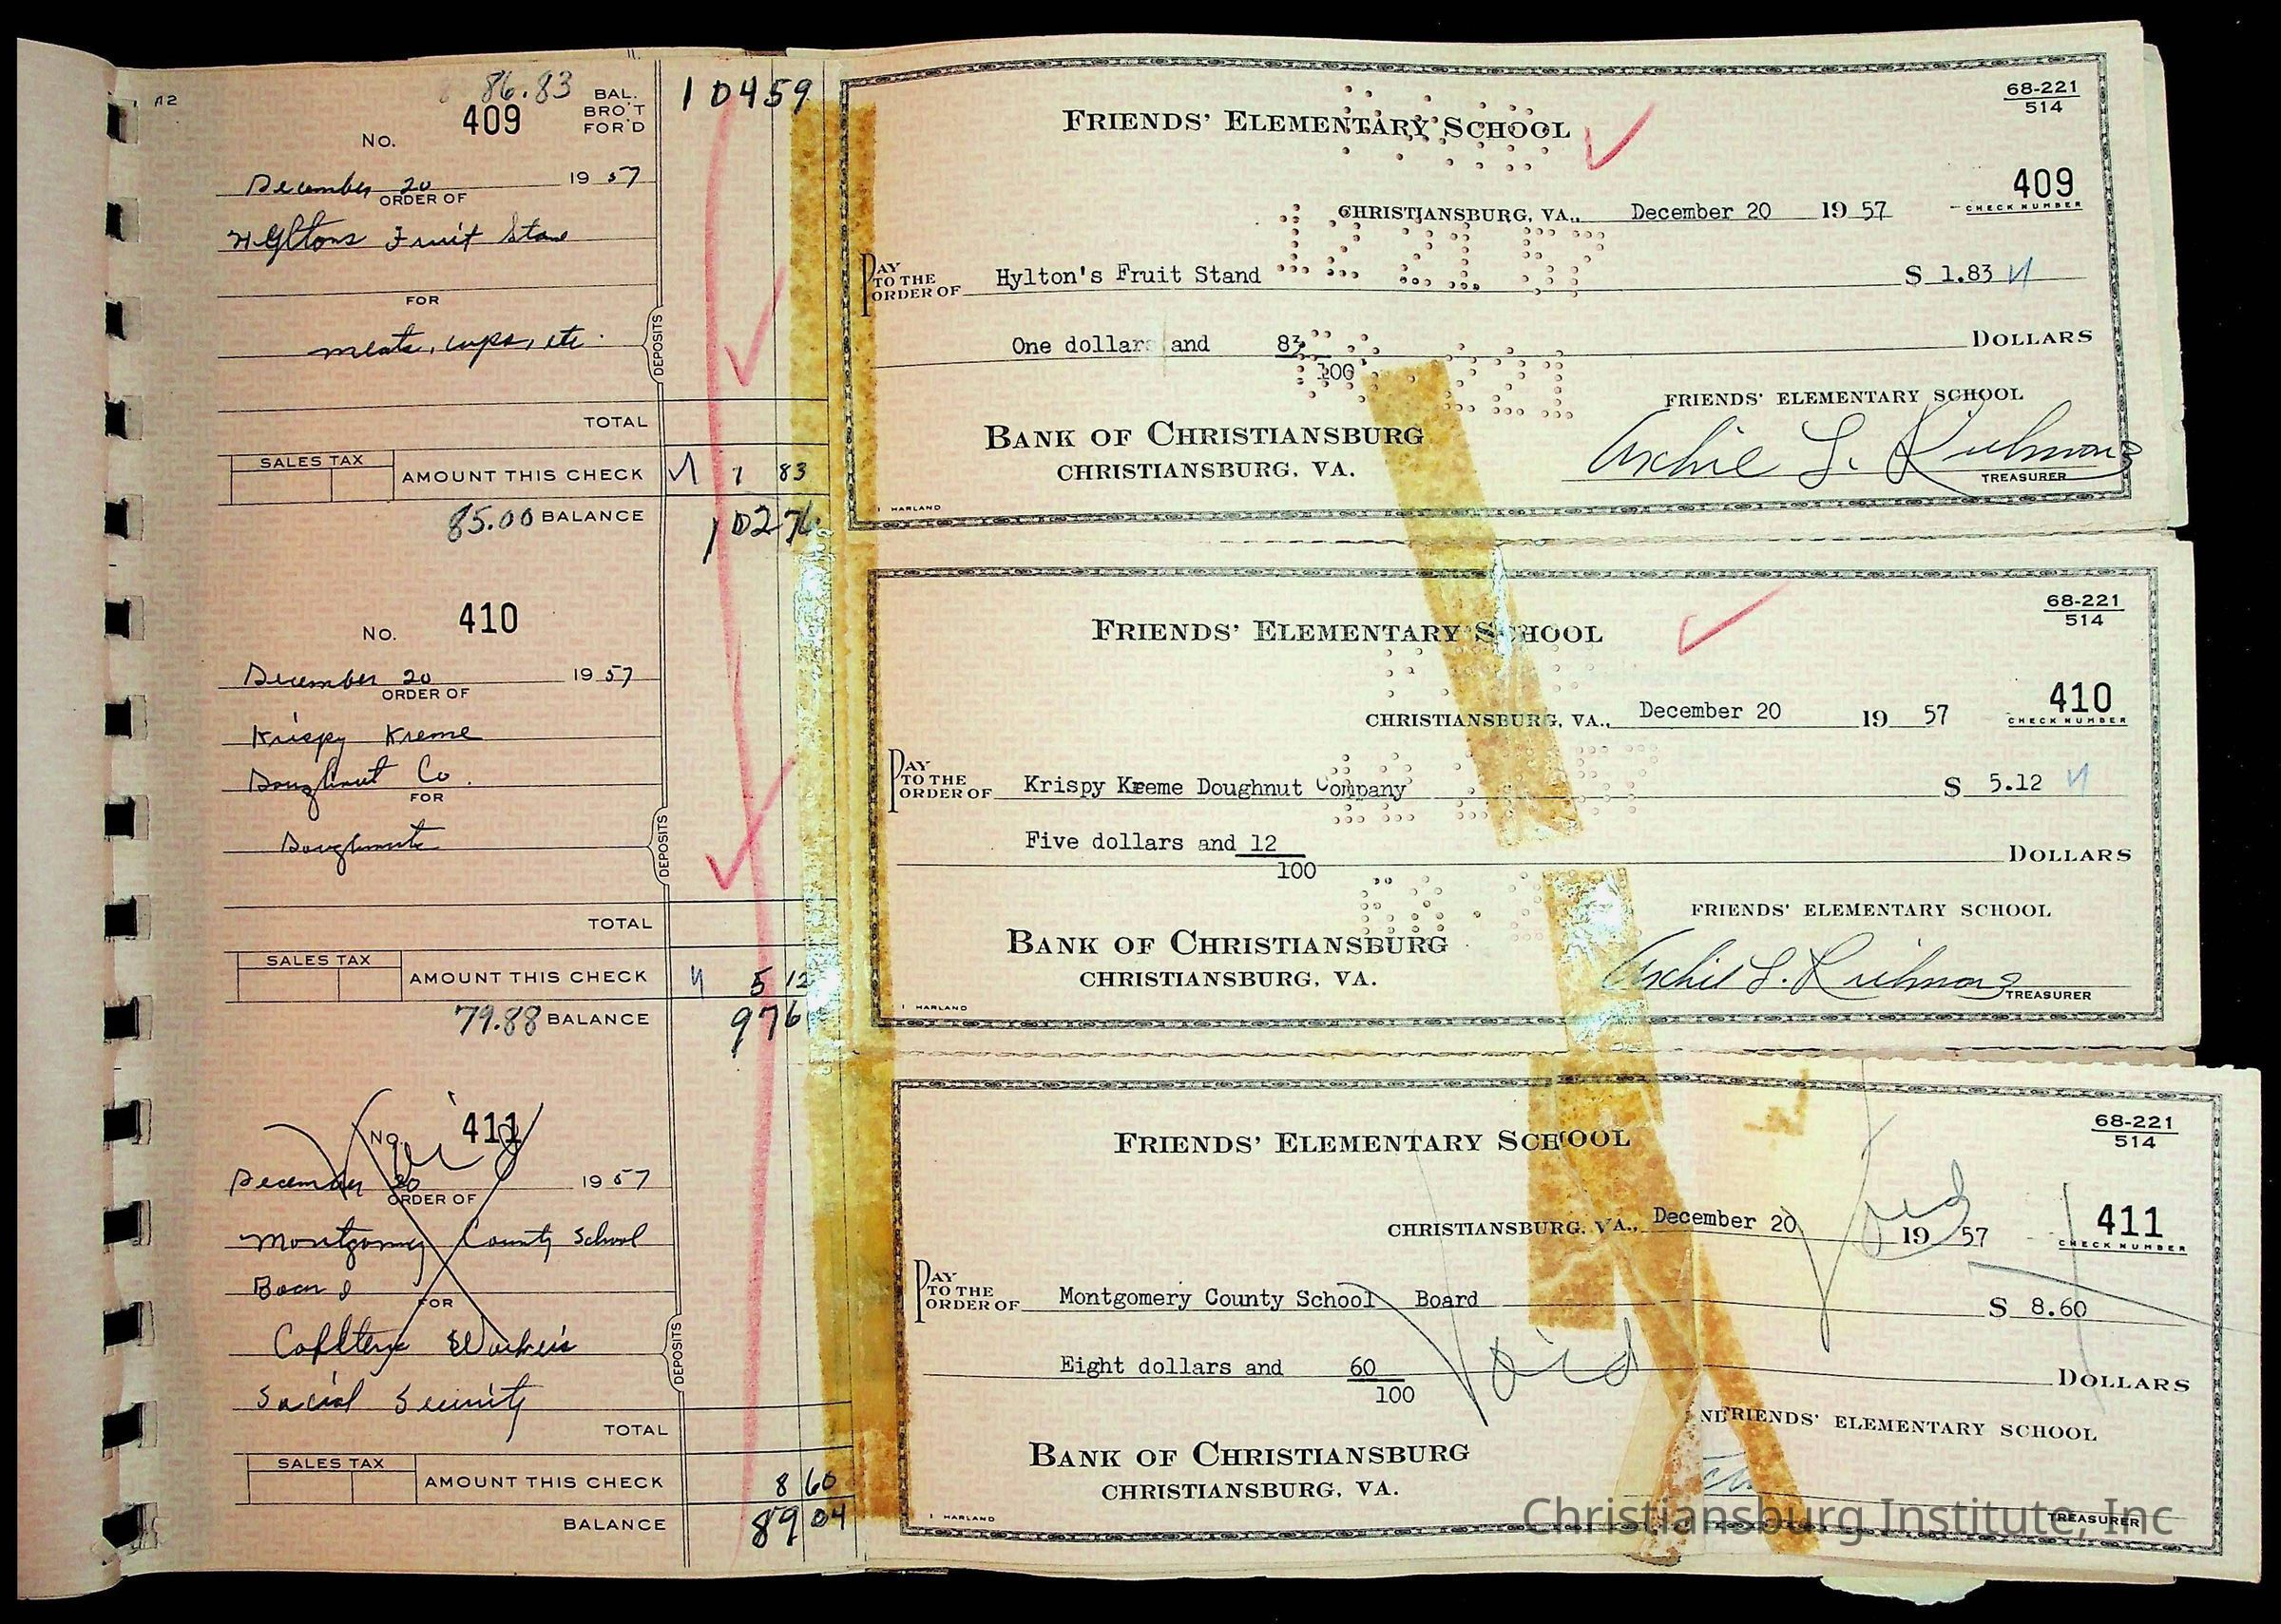 86.83 BAL. BRO'T FOR'D 104 59
No. 409
December 20 19 57
ORDER OF
Hyltons Fruit Stan
FOR
meats, cups, etc.
DEPOSITS
TOTAL
SALES TAX
AMOUNT THIS CHECK 1 83
85.00 BALANCE 102 76
No. 410
December 20 19 57
ORDER OF
Krispy Kreme
Doughnut Co.
FOR
Doughnuts
DEPOSITS
TOTAL
SALES TAX
AMOUNT THIS CHECK 5 12
79.88 BALANCE 97 6
No. 411
Void
December 20 19 57
ORDER OF
Montgomery County School
Board
FOR
Cafeteria Workers
Social Security
DEPOSITS
TOTAL
SALES TAX
AMOUNT THIS CHECK 8 60
BALANCE 89 04
68-221
514
FRIENDS' ELEMENTARY SCHOOL
409
CHECK NUMBER
CHRISTIANSBURG, VA., December 20 19 57
12 21 57
PAY TO THE ORDER OF Hylton's Fruit Stand $ 1.83
One dollar and 83/100 DOLLARS
FRIENDS' ELEMENTARY SCHOOL
BANK OF CHRISTIANSBURG
CHRISTIANSBURG, VA.
Archie L. Richmond
TREASURER
HARLAND
68-221
514
FRIENDS' ELEMENTARY SCHOOL
410
CHECK NUMBER
CHRISTIANSBURG, VA., December 20 19 57
PAY TO THE ORDER OF Krispy Kreme Doughnut Company $ 5.12
Five dollars and 12/100 DOLLARS
FRIENDS' ELEMENTARY SCHOOL
BANK OF CHRISTIANSBURG
CHRISTIANSBURG, VA.
Archie L. Richmond
TREASURER
HARLAND
68-221
514
FRIENDS' ELEMENTARY SCHOOL
Void
411
CHECK NUMBER
CHRISTIANSBURG, VA., December 20 19 57
PAY TO THE ORDER OF Montgomery County School Board $ 8.60
Void
Eight dollars and 60/100 DOLLARS
FRIENDS' ELEMENTARY SCHOOL
BANK OF CHRISTIANSBURG
CHRISTIANSBURG, VA.
TREASURER
HARLAND
Christiansburg Institute, Inc